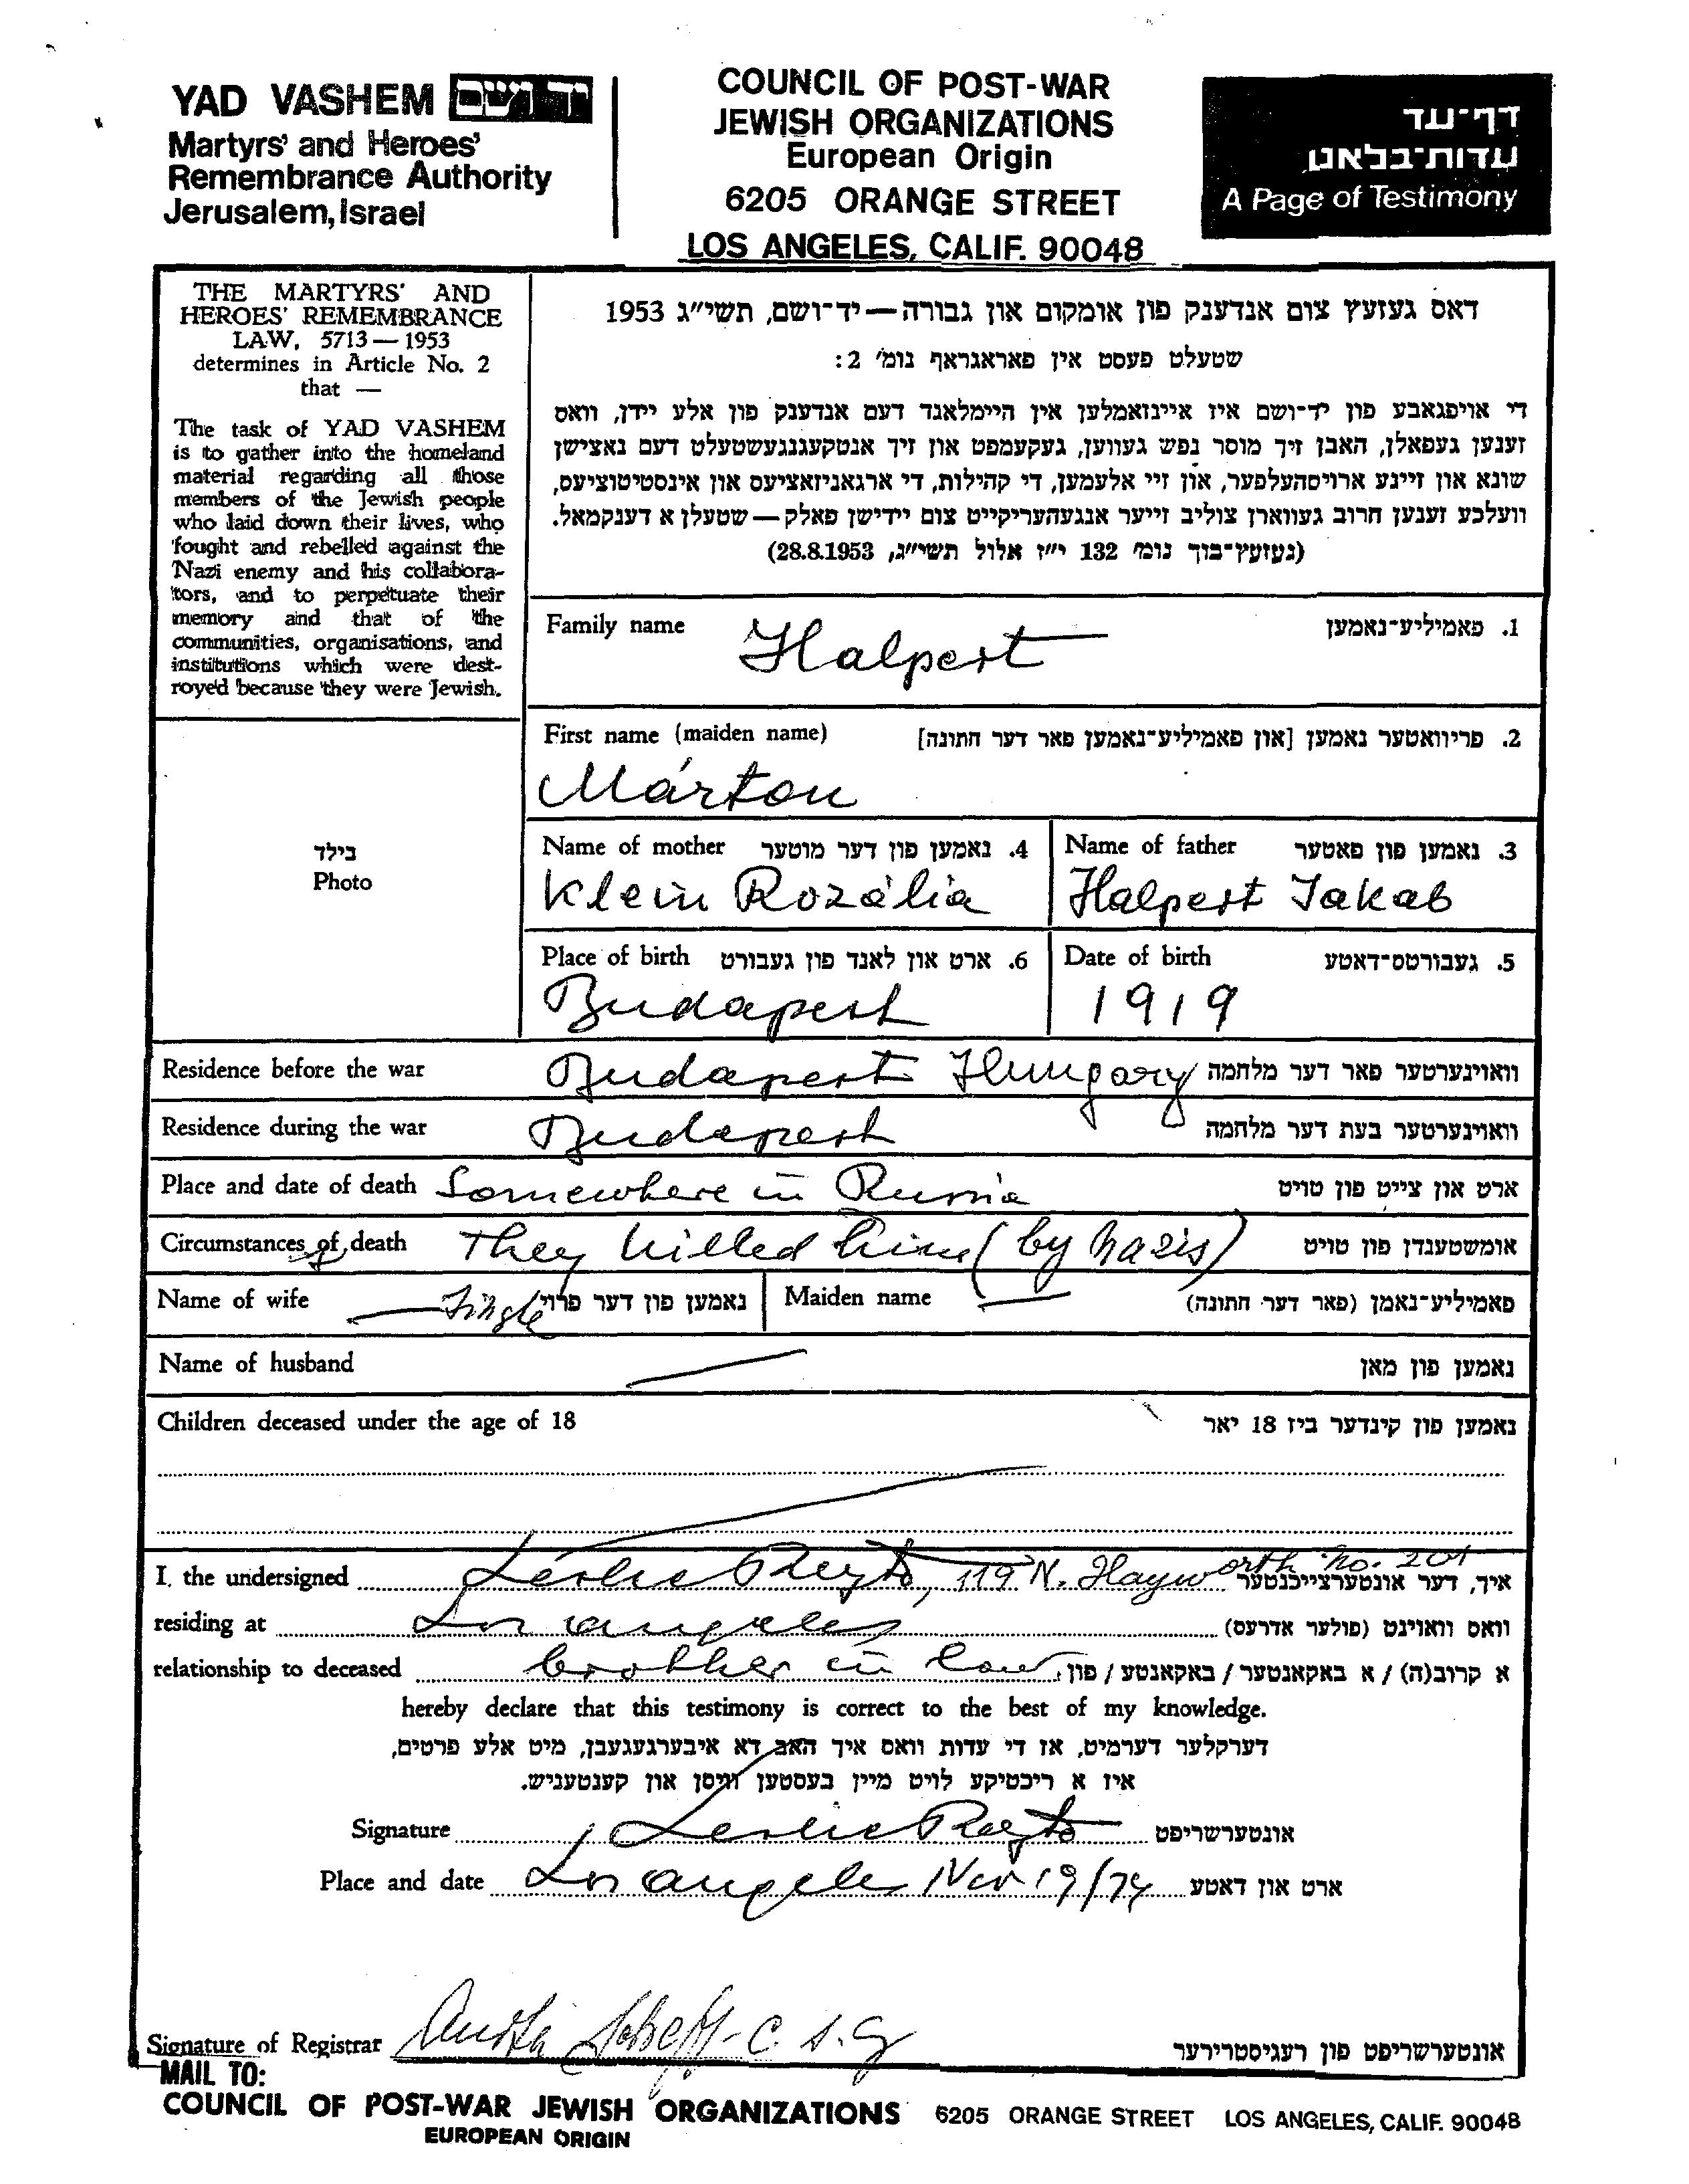 YAD VASHEM יד ושם
Martyrs' and Heroes'
Remembrance Authority
Jerusalem, Israel
COUNCIL OF POST-WAR
JEWISH ORGANIZATIONS
European Origin
6205 ORANGE STREET
LOS ANGELES, CALIF. 90048
דף-עד
עדות-בלאט
A Page of Testimony
THE MARTYRS' AND
HEROES' REMEMBRANCE
LAW, 5713—1953
determines in Article No. 2
that —
The task of YAD VASHEM
is to gather into the homeland
material regarding all those
members of the Jewish people
who laid down their lives, who
fought and rebelled against the
Nazi enemy and his collabora-
tors, and to perpetuate their
memory and that of the
communities, organisations, and
institutions which were dest-
royed because they were Jewish.
דאס געזעץ צום אנדענק פון אומקום און גבורה — יד-ושם, תשי"ג 1953
שטעלט פעסט אין פאראגראף נומ' 2:
די אויפגאבע פון יד-ושם איז איינזאמלען אין היימלאנד דעם אנדענק פון אלע יידן, וואס
זענען געפאלן, האבן זיך מוסר נפש געווען, געקעמפט און זיך אנטקעגנגעשטעלט דעם נאצישן
שונא און זיינע ארויסהעלפער, און זיי אלעמען, די קהילות, די ארגאניזאציעס און אינסטיטוציעס,
וועלכע זענען חרוב געווארן צוליב זייער אנגעהעריקייט צום יידישן פאלק — שטעלן א דענקמאל.
(געזעץ-בוך נומ' 132 י"ז אלול תשי"ג, 28.8.1953)
Family name Halpert 1. פאמיליע-נאמען
First name (maiden name) 2. פריוואטער נאמען [און פאמיליע-נאמען פאר דער חתונה]
Márton
בילד
Photo
Name of mother 4. נאמען פון דער מוטער Name of father 3. נאמען פון פאטער
Klein Rozália Halpert Jakab
Place of birth 6. ארט און לאנד פון געבורט Date of birth 5. געבורטס-דאטע
Budapest 1919
Residence before the war Budapest Hungary וואוינערטער פאר דער מלחמה
Residence during the war Budapest וואוינערטער בעת דער מלחמה
Place and date of death Somewhere in Russia ארט און צייט פון טויט
Circumstances of death They killed him (by nazis) אומשטענדן פון טויט
Name of wife — Single נאמען פון דער פרוי Maiden name — פאמיליע-נאמן (פאר דער חתונה)
Name of husband — נאמען פון מאן
Children deceased under the age of 18 נאמען פון קינדער ביז 18 יאר
I, the undersigned Leslie Reytó, 119 N. Hayworth No. 201 איך, דער אונטערצייכנטער
residing at Los angeles וואס וואוינט (פולער אדרעס)
relationship to deceased brother in law א קרוב(ה) / א באקאנטער / באקאנטע / פון
hereby declare that this testimony is correct to the best of my knowledge.
דערקלער דערמיט, אז די עדות וואס איך האב דא איבערגעגעבן, מיט אלע פרטים,
איז א ריכטיקע לויט מיין בעסטען וויסן און קענטעניש.
Signature Leslie Reytó אונטערשריפט
Place and date Los angeles Nov 19/74 ארט און דאטע
Signature of Registrar אונטערשריפט פון רעגיסטרירער
MAIL TO:
COUNCIL OF POST-WAR JEWISH ORGANIZATIONS 6205 ORANGE STREET LOS ANGELES, CALIF. 90048
EUROPEAN ORIGIN